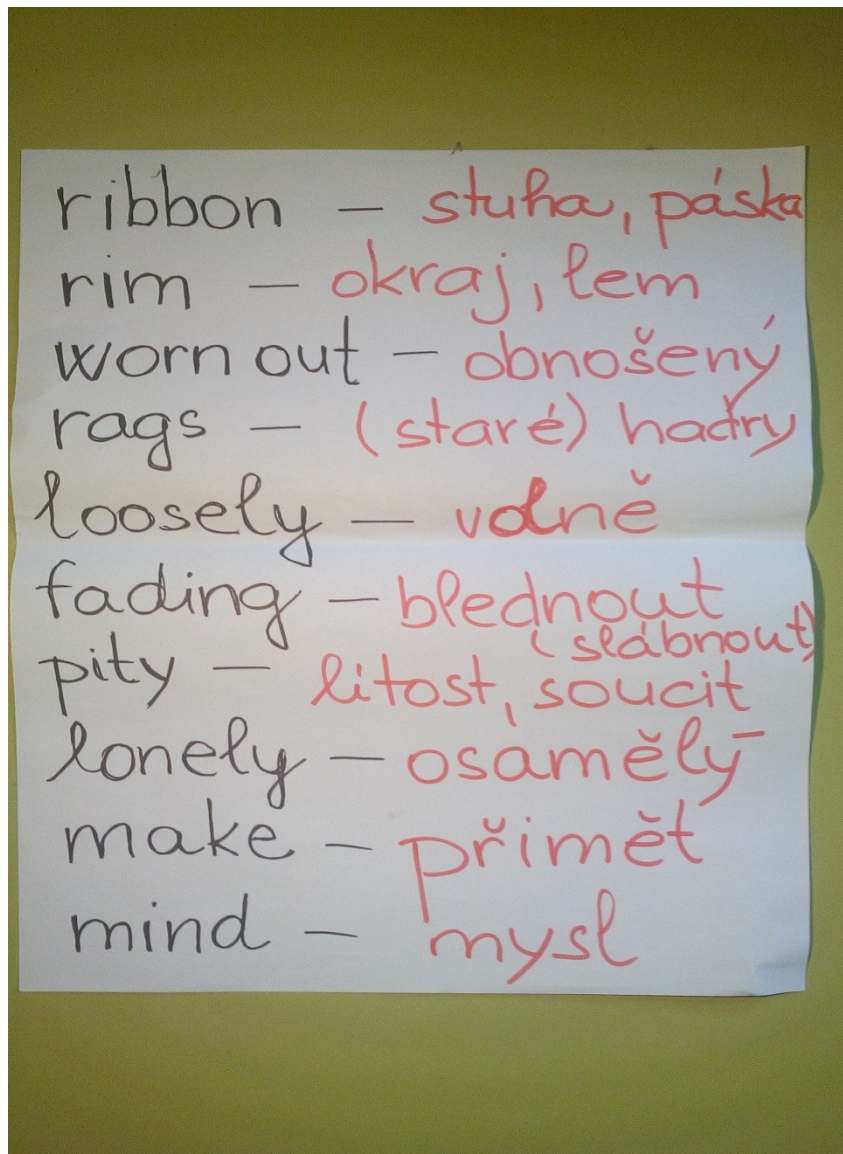 ribbon – stuha, páska
rim – okraj, lem
worn out – obnošený
rags – (staré) hadry
loosely – volně
fading – blednout
(slábnout)
pity – lítost, soucit
lonely – osamělý
make – přimět
mind – mysl